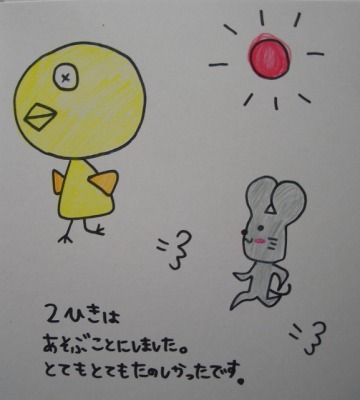 2ひきは
あそぶことにしました。
とてもとてもたのしかったです。